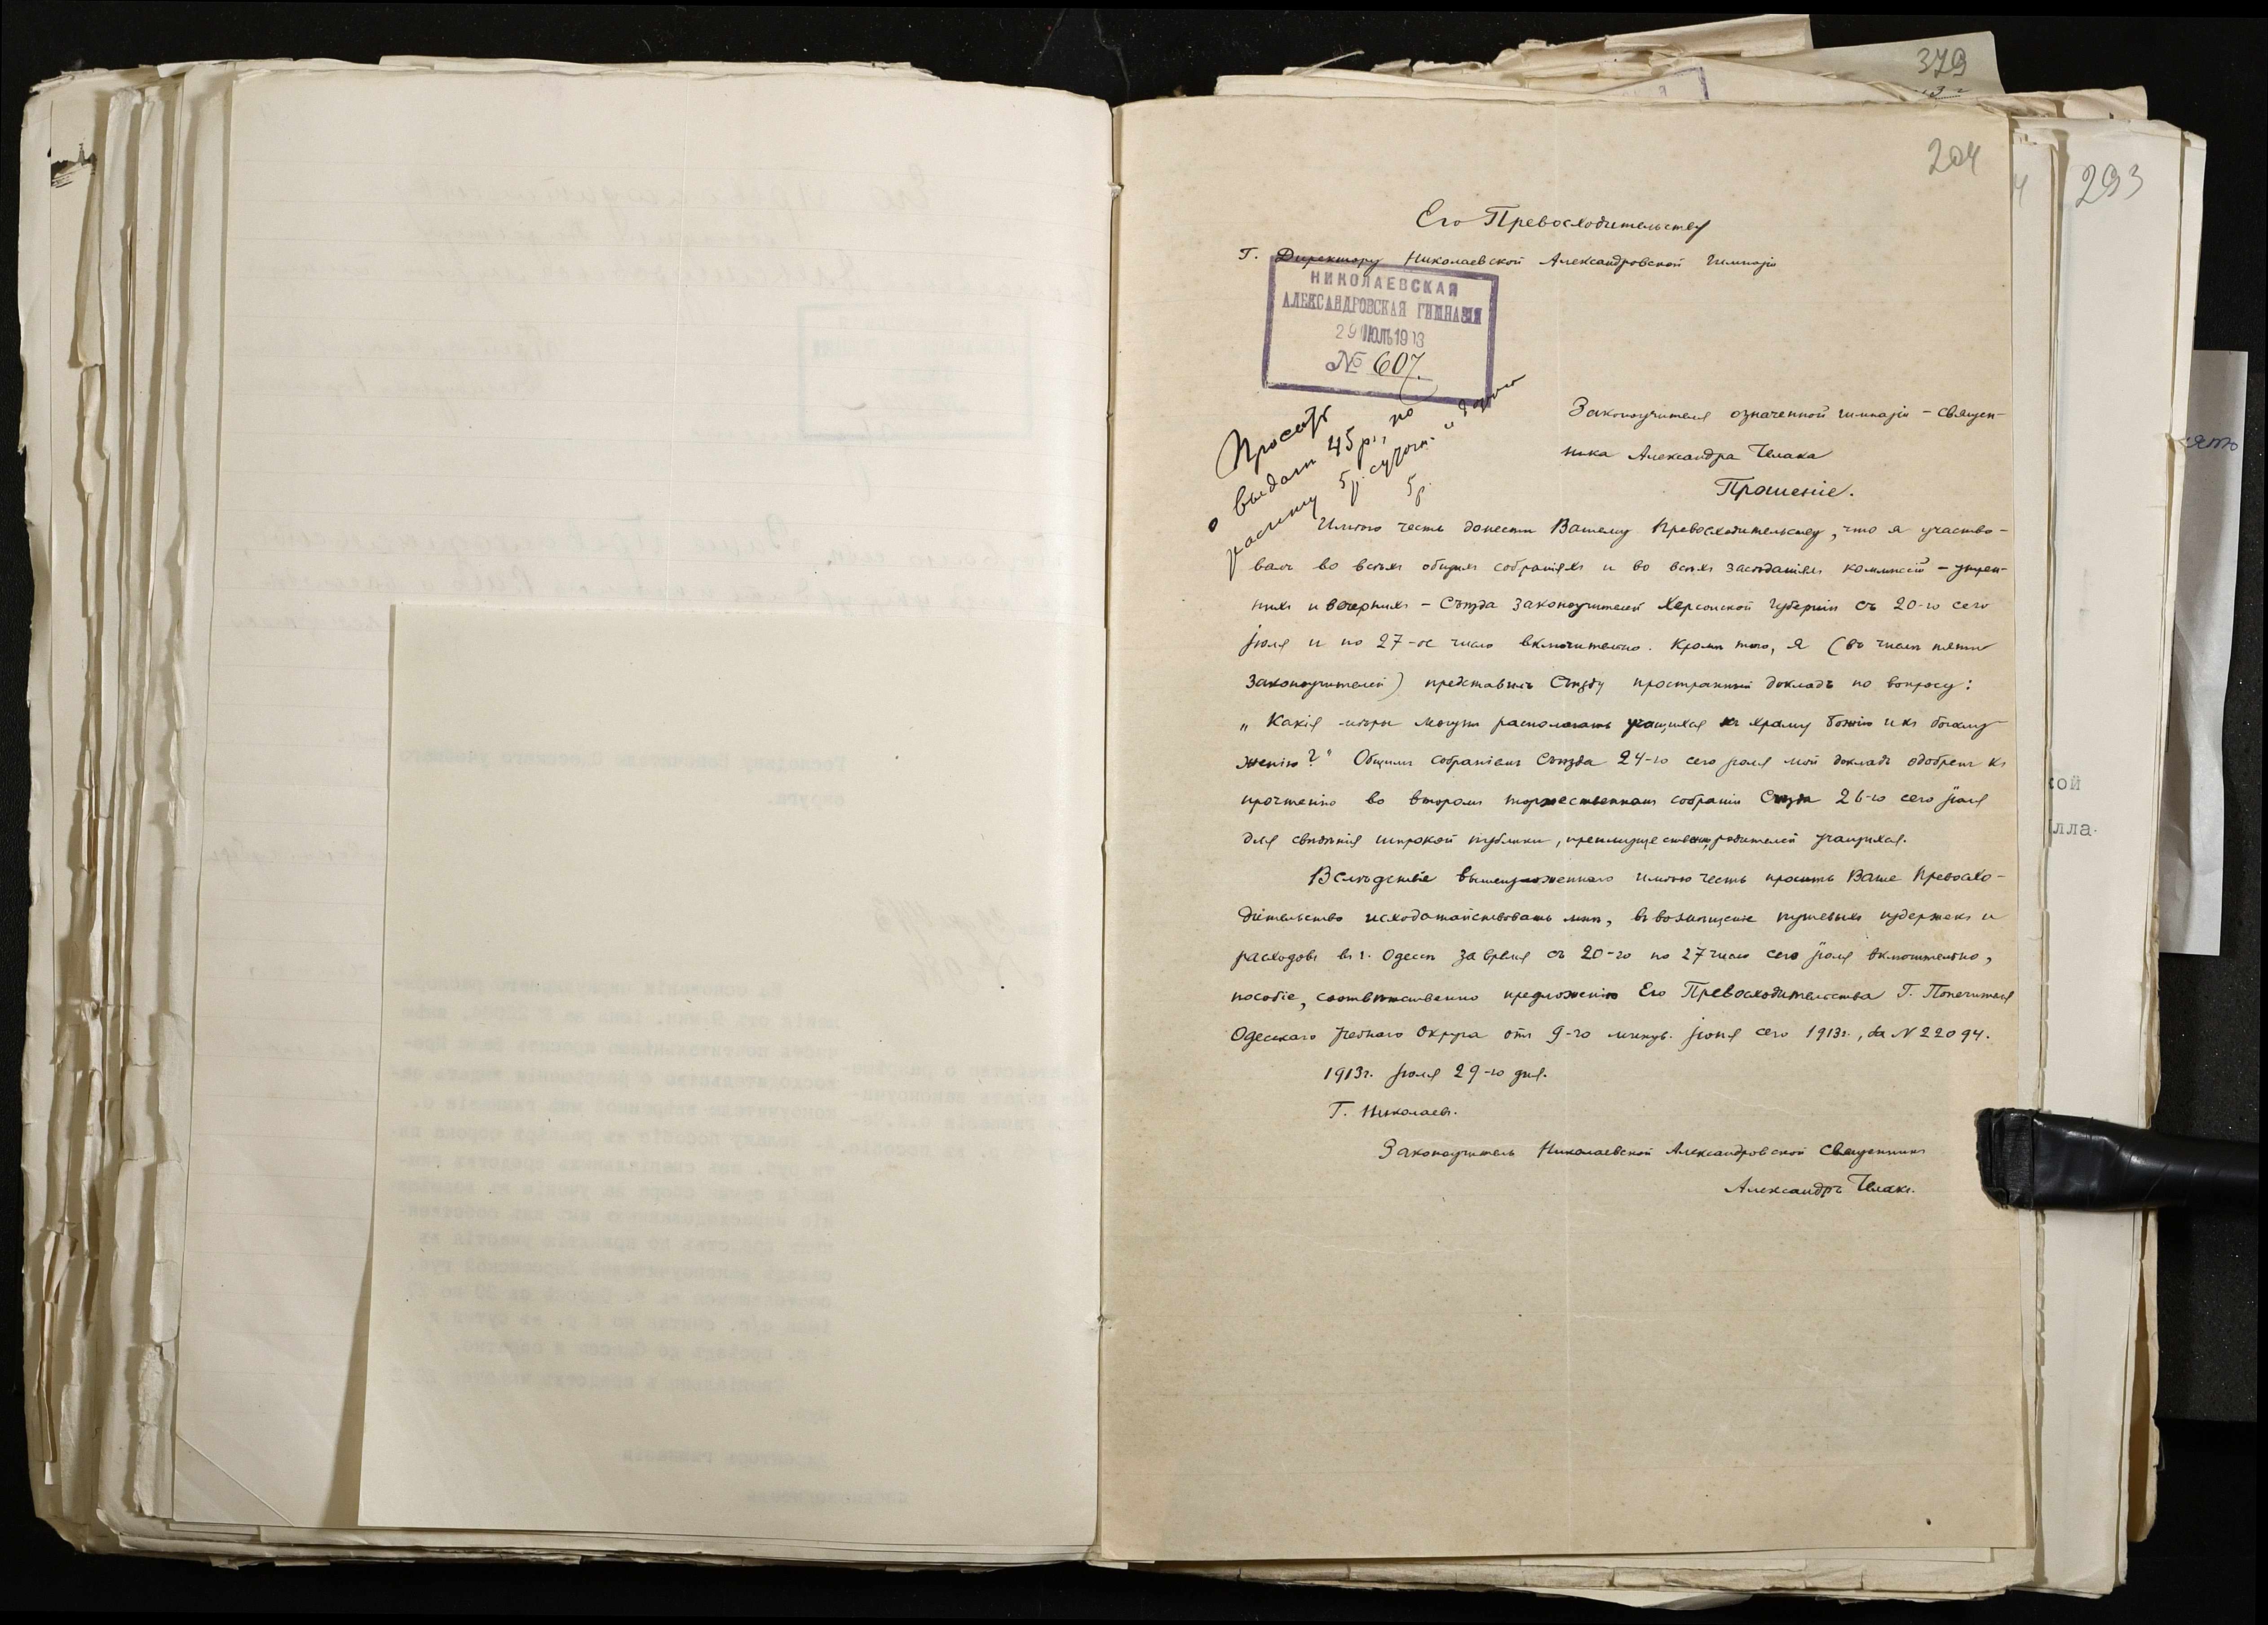 379
204
293
Его Превосходительству
Г. Директору Николаевской Александровской Гимназіи
НИКОЛАЕВСКАЯ
АЛЕКСАНДРОВСКАЯ ГИМНАЗІЯ
29 ІЮЛ 1913
№ 607.
Просить
о выдачѣ 45 р., по
расчету 5 р. суточн. и
5 р.
Законоучителя означенной гимназіи – священ-
ника Александра Челака
Прошеніе.
Имѣю честь донести Вашему Превосходительству, что я участво-
валъ во всѣхъ общихъ собраніяхъ и во всѣхъ засѣданіяхъ коммиссій – утрен-
нихъ и вечернихъ – Съѣзда законоучителей Херсонской губерніи съ 20-го сего
іюля и по 27-ое число включительно. Кромѣ того, я (въ числѣ пяти
законоучителей) представилъ Съѣзду пространный докладъ по вопросу:
„Какія мѣры могутъ располагать учащихся къ храму Божію и къ богослу-
женію?" Общимъ собраніемъ Съѣзда 24-го сего іюля мой докладъ одобренъ къ
прочтенію во второмъ торжественномъ собраніи Съѣзда 26-го сего іюля
для свѣдѣнія широкой публики, преимущественно родителей учащихся.
Вслѣдствіе вышеизложеннаго имѣю честь просить Ваше Превосхо-
дительство исходатайствовать мнѣ, въ возмѣщеніе путевыхъ издержекъ и
расходовъ въ г. Одессѣ за время съ 20-го по 27 число сего іюля включительно,
пособіе, соотвѣтственно предложенію Его Превосходительства Г. Попечителя
Одесскаго Учебнаго Округа отъ 9-го минув. іюня сего 1913 г., за № 22094.
1913 г. іюля 29-го дня.
Г. Николаевъ.
Законоучитель Николаевской Александровской Священникъ
Александръ Челакъ.
кой
лла-